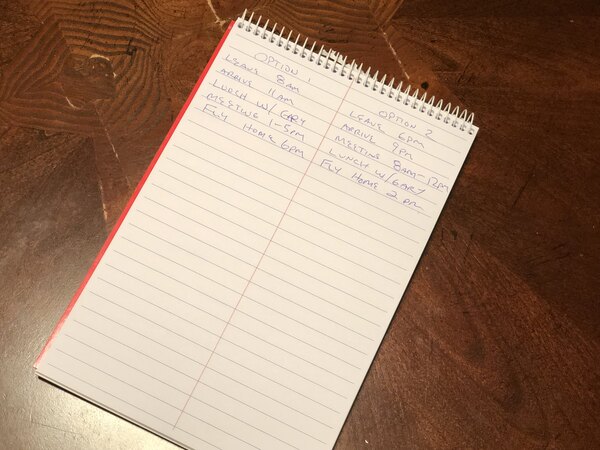 OPTION 1
LEAVE 8AM
ARRIVE 11AM
LUNCH W/ GARY
MEETING 1-5PM
FLY HOME 6PM
OPTION 2
LEAVE 6PM
ARRIVE 9PM
MEETING 8AM-12PM
LUNCH W/ GARY
FLY HOME 2PM